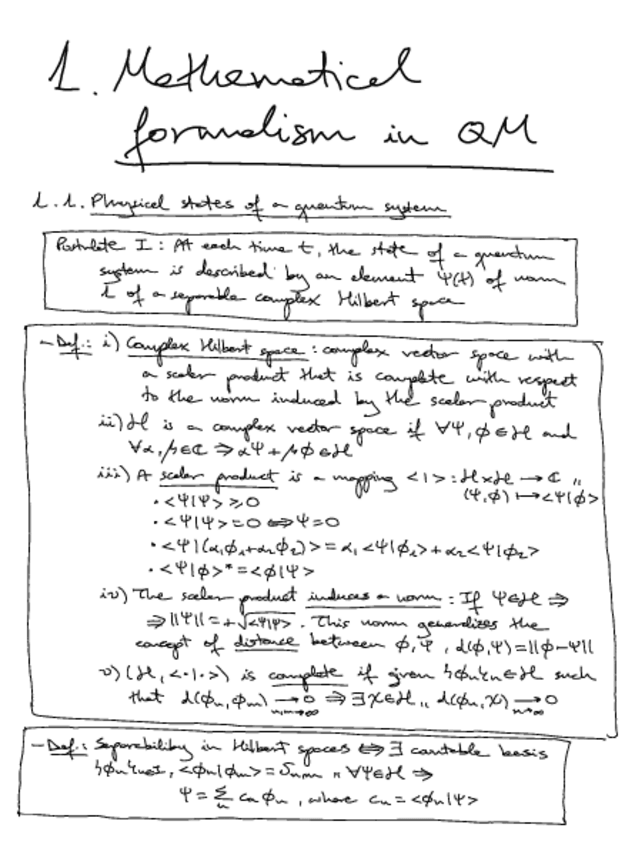 1. Mathematical
formalism in QM
1.1. Physical states of a quantum system
Postulate I : At each time t, the state of a quantum
system is described by an element Ψ(t) of norm
1 of a separable complex Hilbert space
- Def.: i) Complex Hilbert space : complex vector space with
a scalar product that is complete with respect
to the norm induced by the scalar product
ii) ℋ is a complex vector space if ∀Ψ, ϕ ∈ ℋ and
∀α, μ ∈ ℂ ⇒ αΨ + μϕ ∈ ℋ
iii) A scalar product is a mapping < | > : ℋ×ℋ → ℂ "
(Ψ, ϕ) ↦ <Ψ|ϕ>
· <Ψ|Ψ> ≥ 0
· <Ψ|Ψ> = 0 ⇔ Ψ = 0
· <Ψ|(α₁ϕ₁+α₂ϕ₂)> = α₁<Ψ|ϕ₁> + α₂<Ψ|ϕ₂>
· <Ψ|ϕ>* = <ϕ|Ψ>
iv) The scalar product induces a norm : If Ψ ∈ ℋ ⇒
⇒ ||Ψ|| = +√<Ψ|Ψ> . This norm generalizes the
concept of distance between ϕ, Ψ , d(ϕ,Ψ) = ||ϕ-Ψ||
v) (ℋ, <·|·>) is complete if given {ϕn}n ∈ ℋ such
that d(ϕn, ϕm) → 0 n,m→∞ ⇒ ∃ χ ∈ ℋ " d(ϕn, χ) → 0 n→∞
- Def.: Separability in Hilbert spaces ⇔ ∃ countable basis
{ϕn}n∈I , <ϕn|ϕm> = δnm " ∀Ψ ∈ ℋ ⇒
Ψ = Σn cn ϕn , where cn = <ϕn|Ψ>